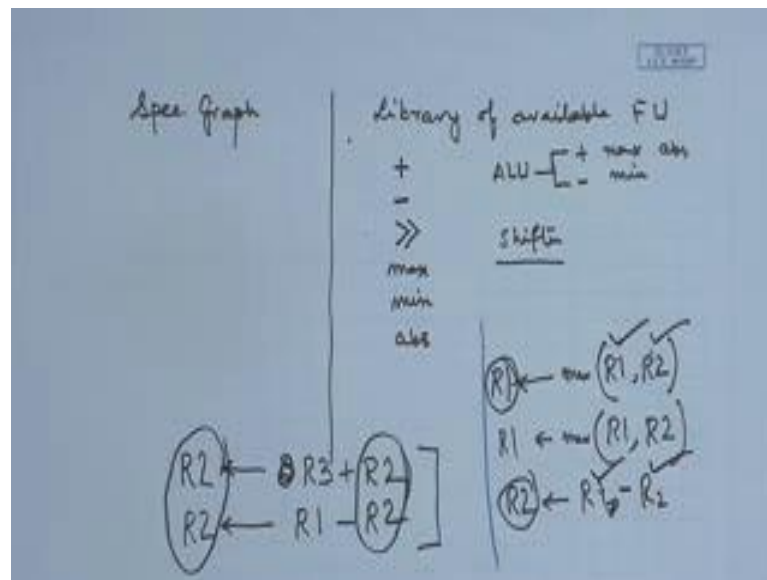 Spec Graph
Library of available FU
+
-
>>
max
min
abs
ALU + max abs
- min
Shifter
R1 ← max (R1, R2)
R1 ← max (R1, R2)
R2 ← R1 - R2
R2 ← R3 + R2
R2 ← R1 - R2